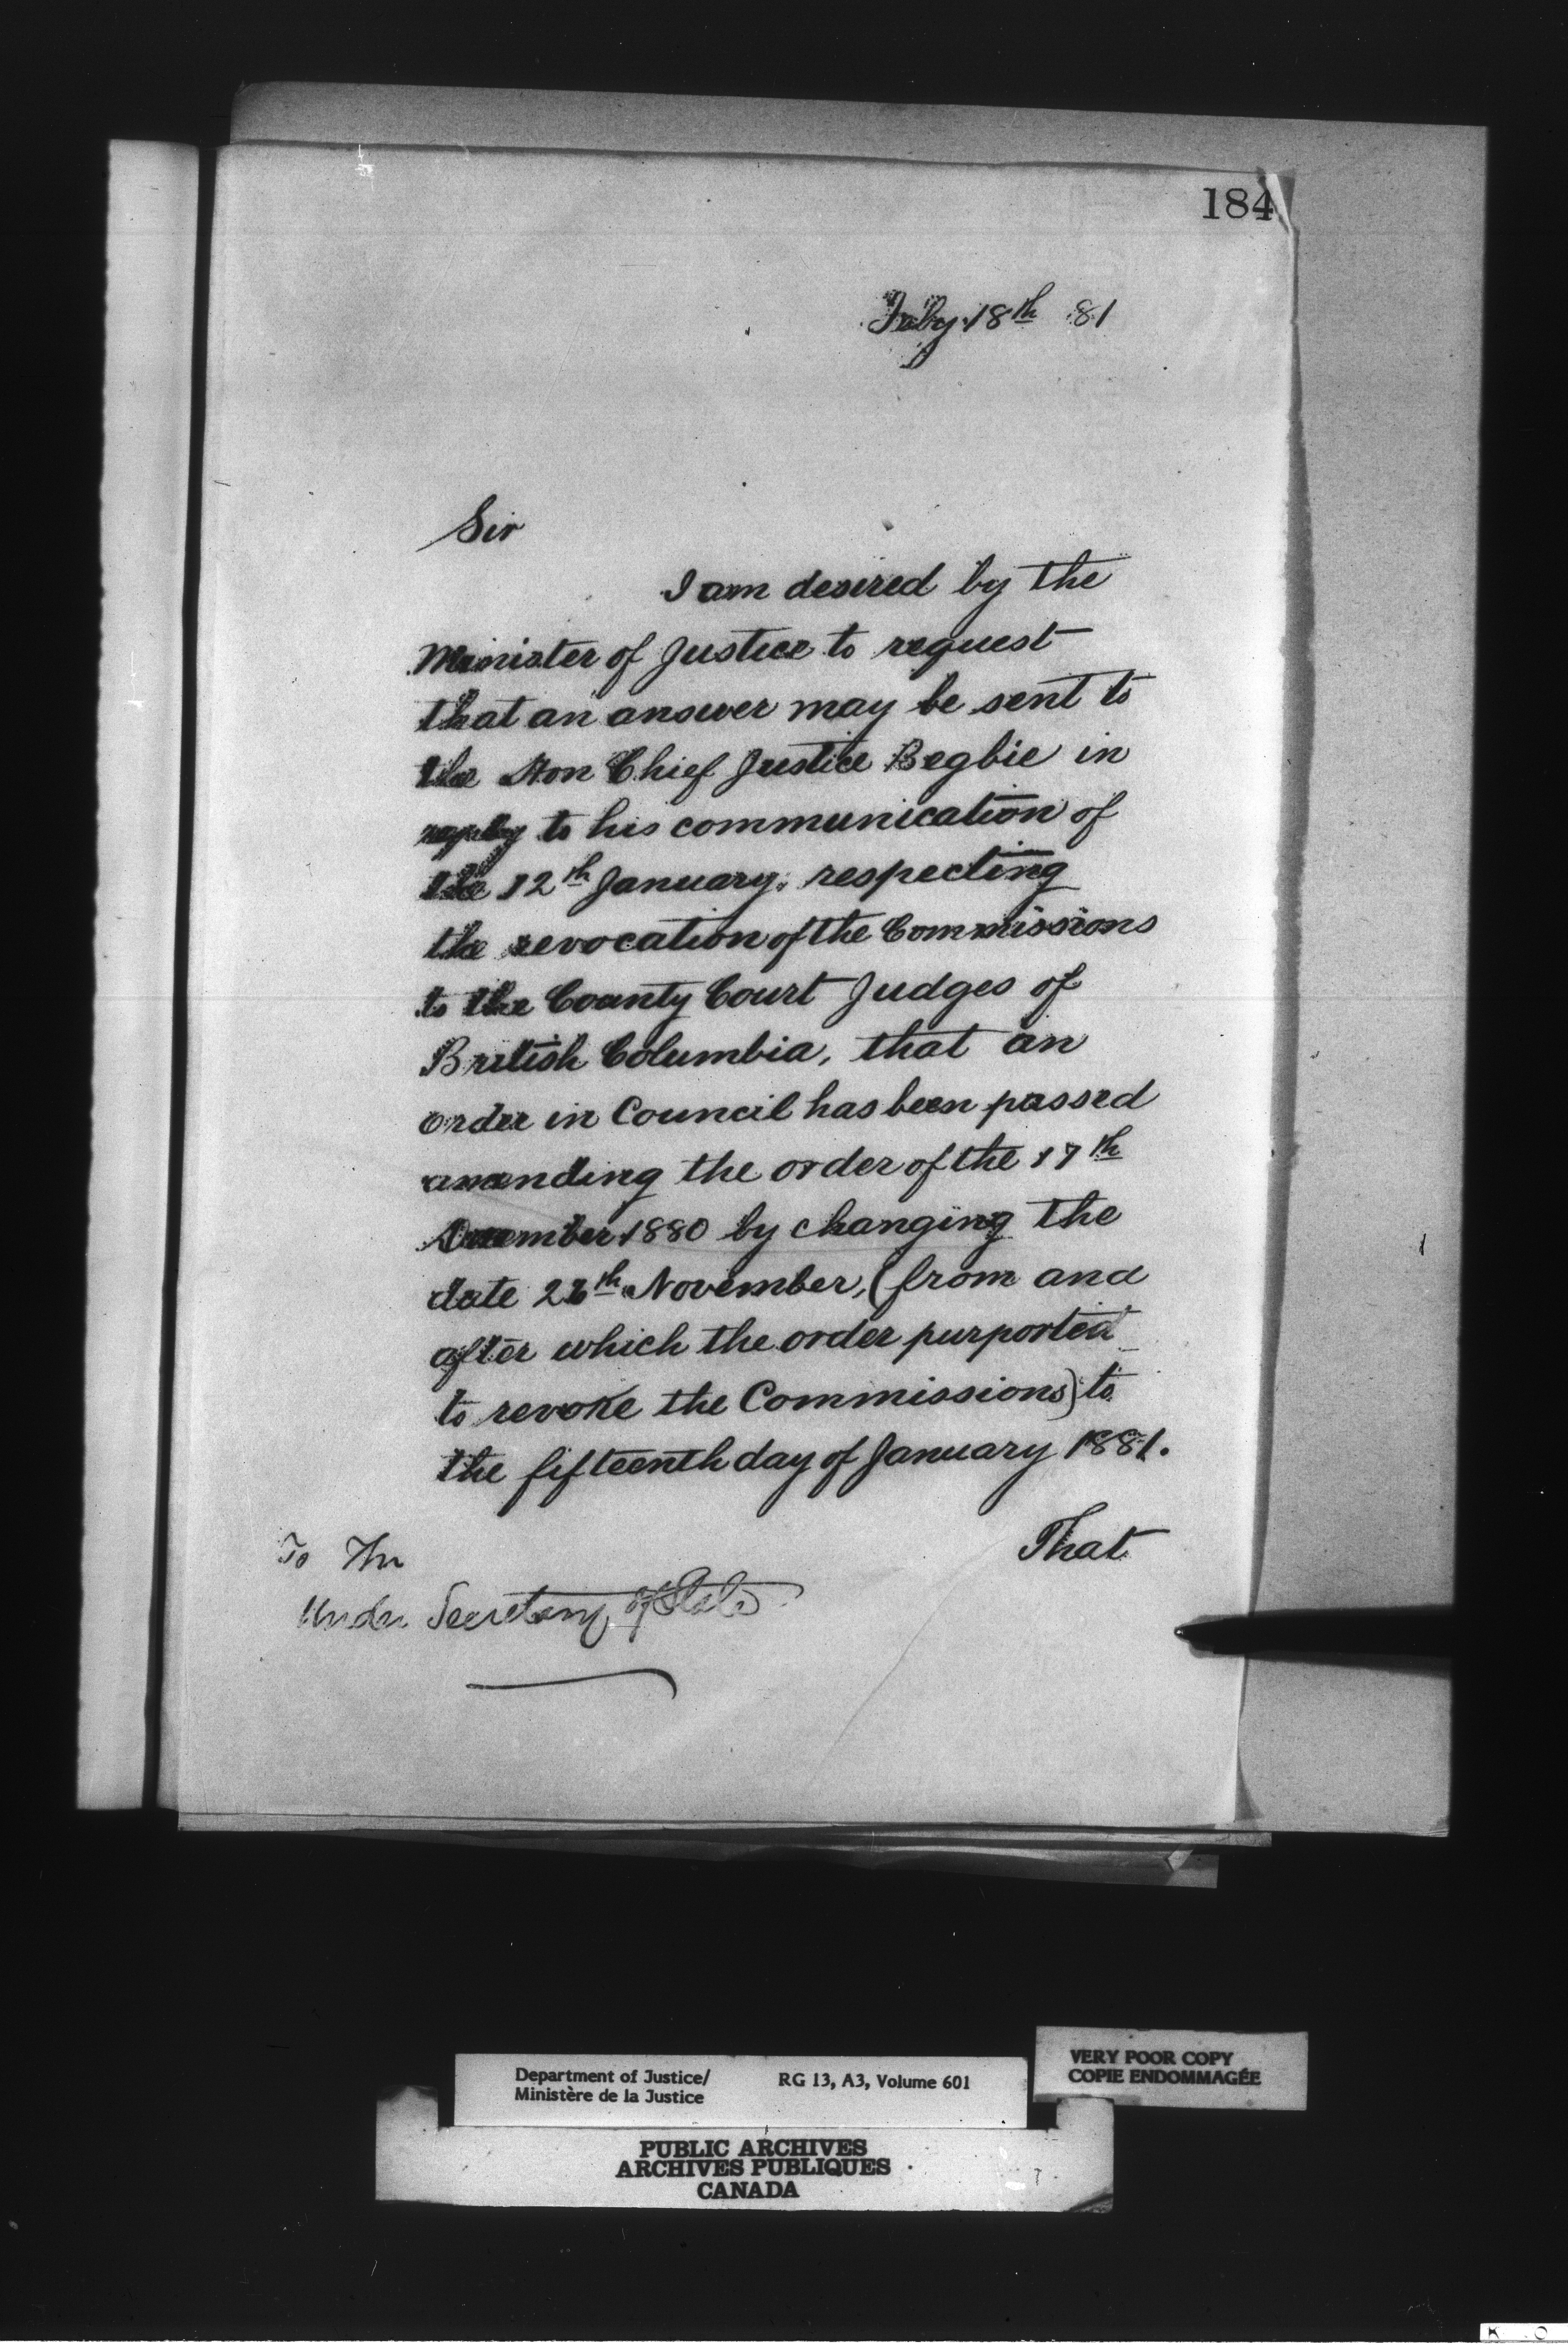 184
Feby 18th 81
Sir
I am desired by the
Minister of Justice to request
that an answer may be sent to
the Hon Chief Justice Begbie in
reply to his communication of
the 12th January, respecting
the revocation of the Commissions
to the County Court Judges of
British Columbia, that an
order in Council has been passed
amending the order of the 17th
December 1880 by changing the
date 26th November, (from and
after which the order purported
to revoke the Commissions) to
the fifteenth day of January 1881.
That
To The
Under Secretary of State
Department of Justice/
Ministère de la Justice
RG 13, A3, Volume 601
VERY POOR COPY
COPIE ENDOMMAGÉE
PUBLIC ARCHIVES
ARCHIVES PUBLIQUES
CANADA